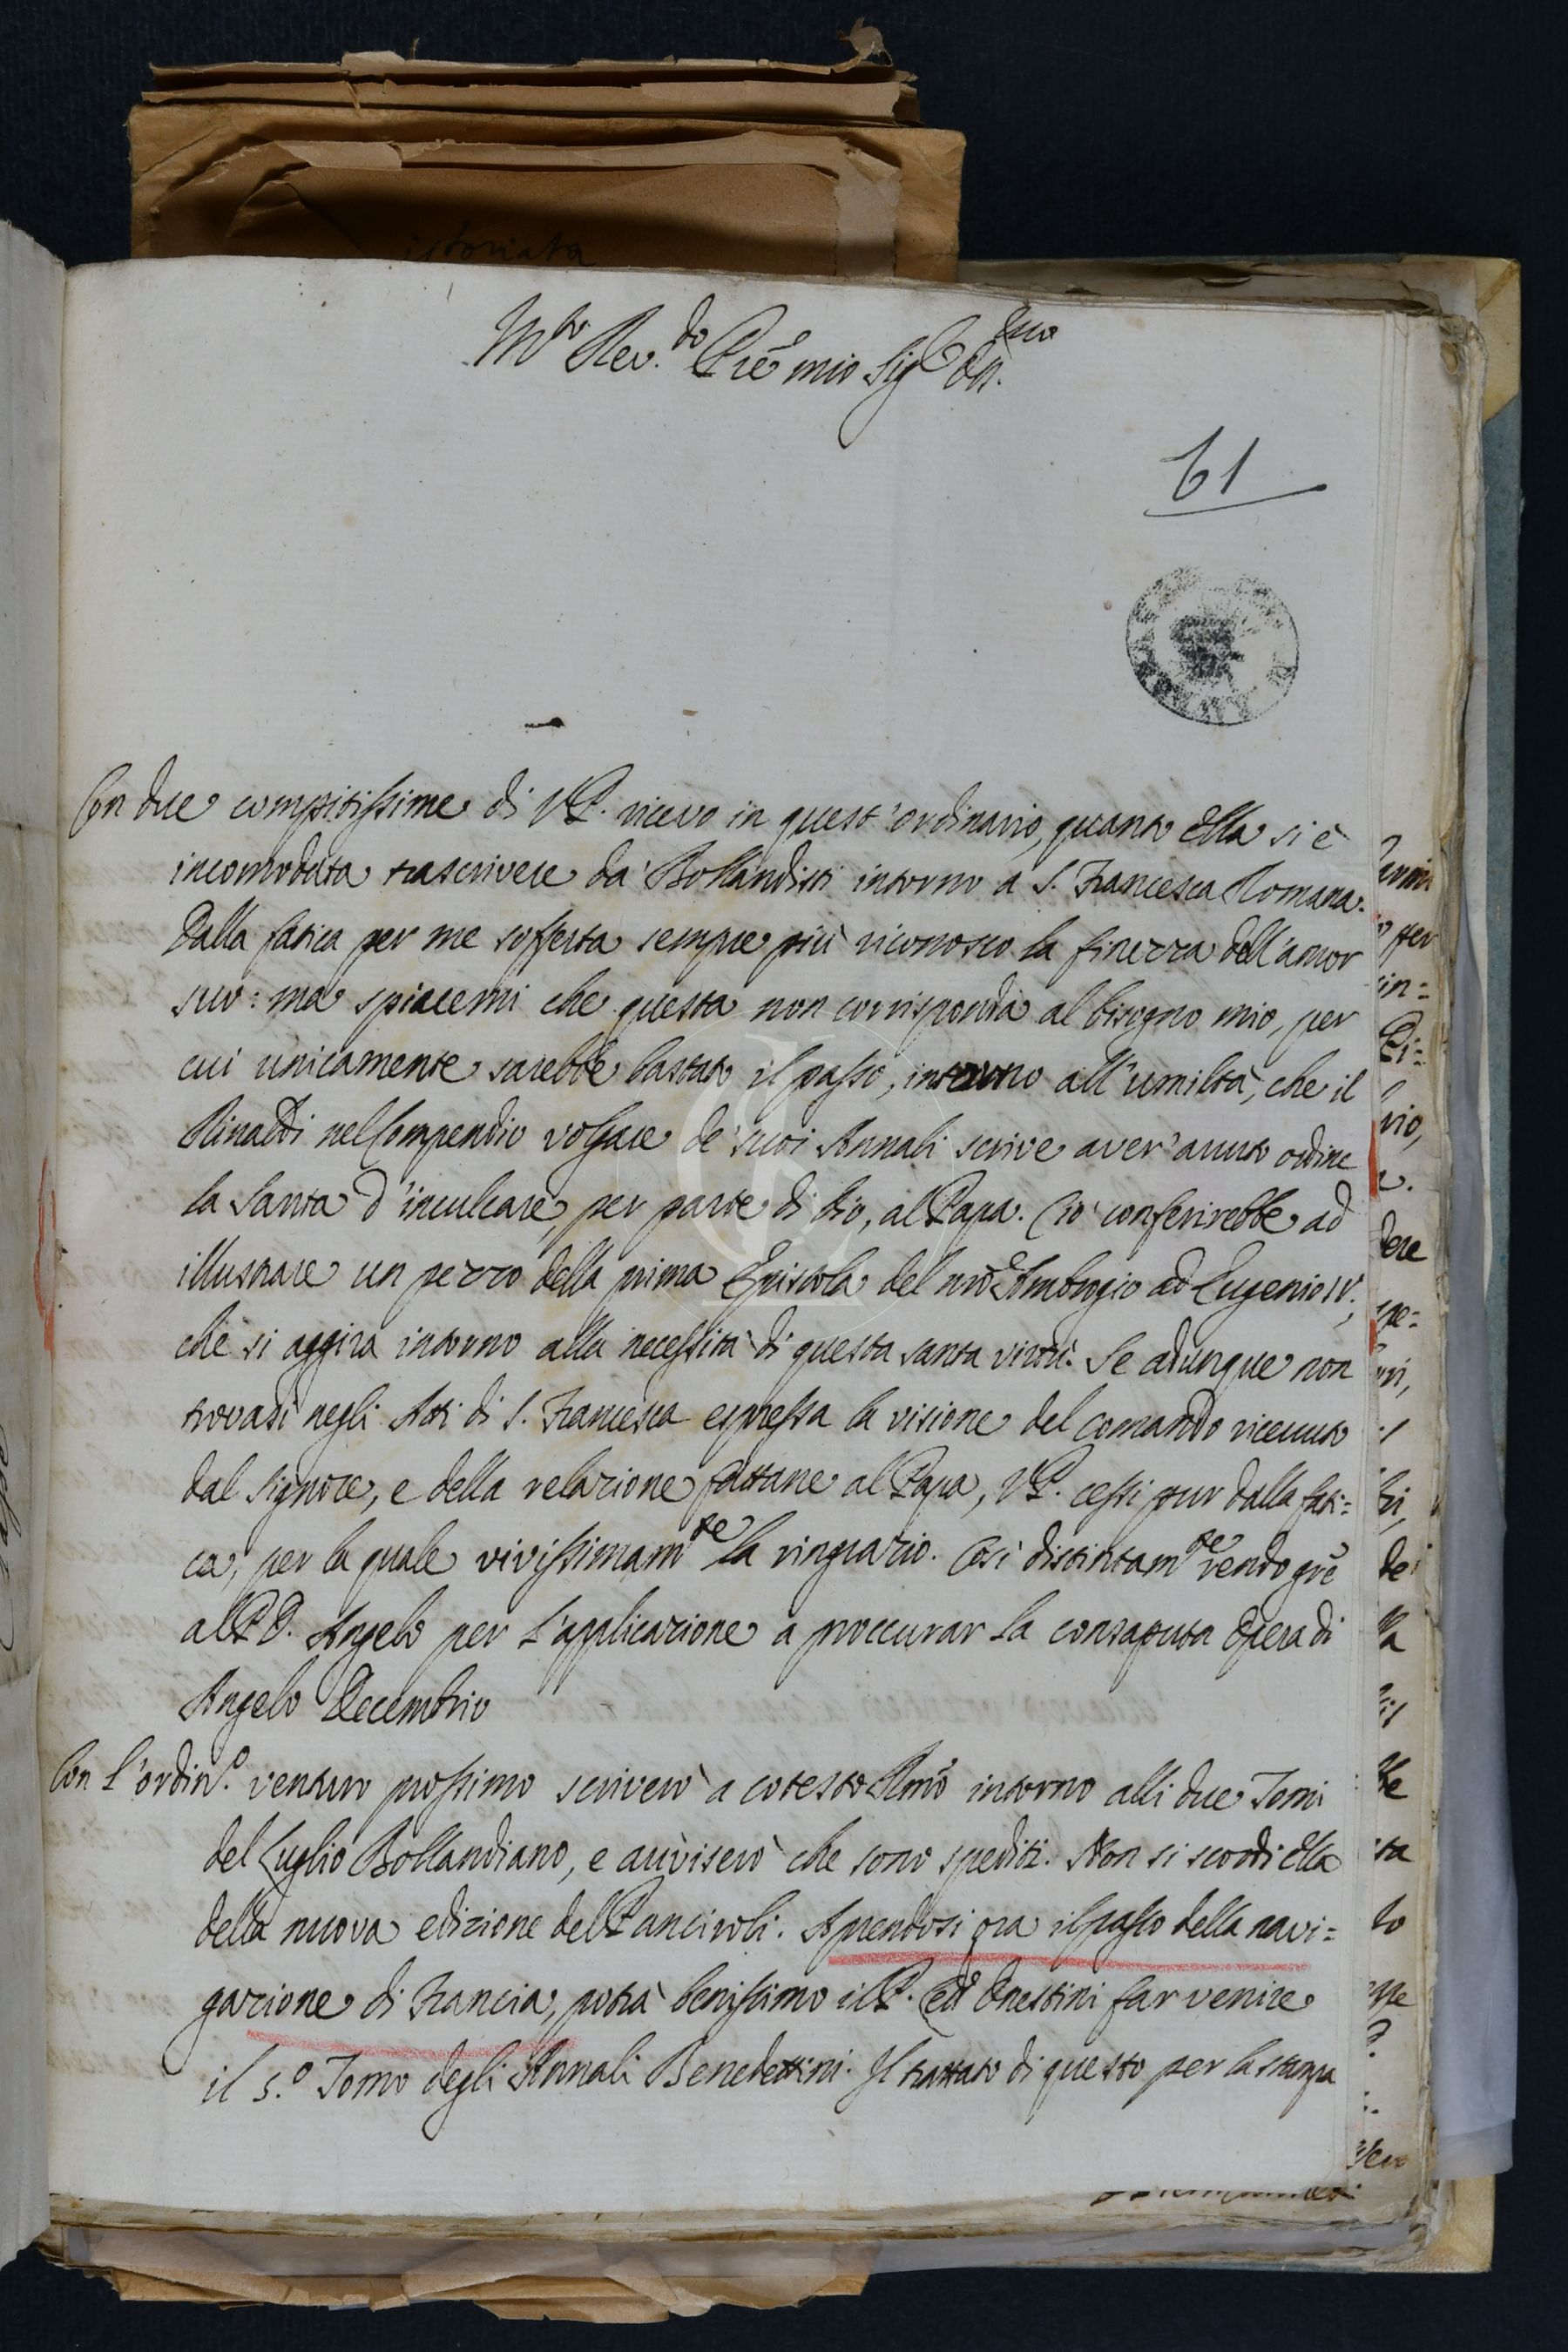 istoriata
M.to Rev.do Prē mio Sig.r
61
Con due compitissime di V.P. ricevo in quest'ordinario, quanto Ella si è
incomodata trascrivere da' Bollandisti intorno a S. Francesca Romana.
Dalla fatica per me sofferta sempre più riconosco la finezza dell'amor
suo: ma spiacemi che questa non corrisponda al bisogno mio, per
cui unicamente sarebbe bastato il passo, intorno all'umiltà, che il
Rinaldi nel Compendio volgare de' suoi Annali scrive aver' avuto ordine
la Santa d'inculcare, per parte di Dio, al Papa. Ciò conferirebbe ad
illustrare un pezzo della prima Epistola del nrō Ambrogio ad Eugenio IV;
che si aggira intorno alla necessità di questa santa virtù. Se adunque non
trovasi negli Atti di S. Francesca espressa la visione del comando ricevuto
dal Signore, e della relazione fattane al Papa, V.P. cessi pur dalla fati=
ca, per la quale vivissimam.te la ringrazio. Così distintam.te rendo grē
al P. D. Angelo per l'applicazione a proccurar la consaputa Opera di
Angelo Decembrio
Con l'ordin.o venturo prossimo scriverò a cotesto Rmō intorno alli due Tomi
del Luglio Bollandiano, e avviserò che sono spediti. Non si scordi Ella
della nuova edizione del Panciroli. Aprendosi ora il passo della navi=
gazione di Francia, potrà benissimo il P. Onestini far venire
il 5.o Tomo degli Annali Benedettini. Il trattato di questo per la stampa